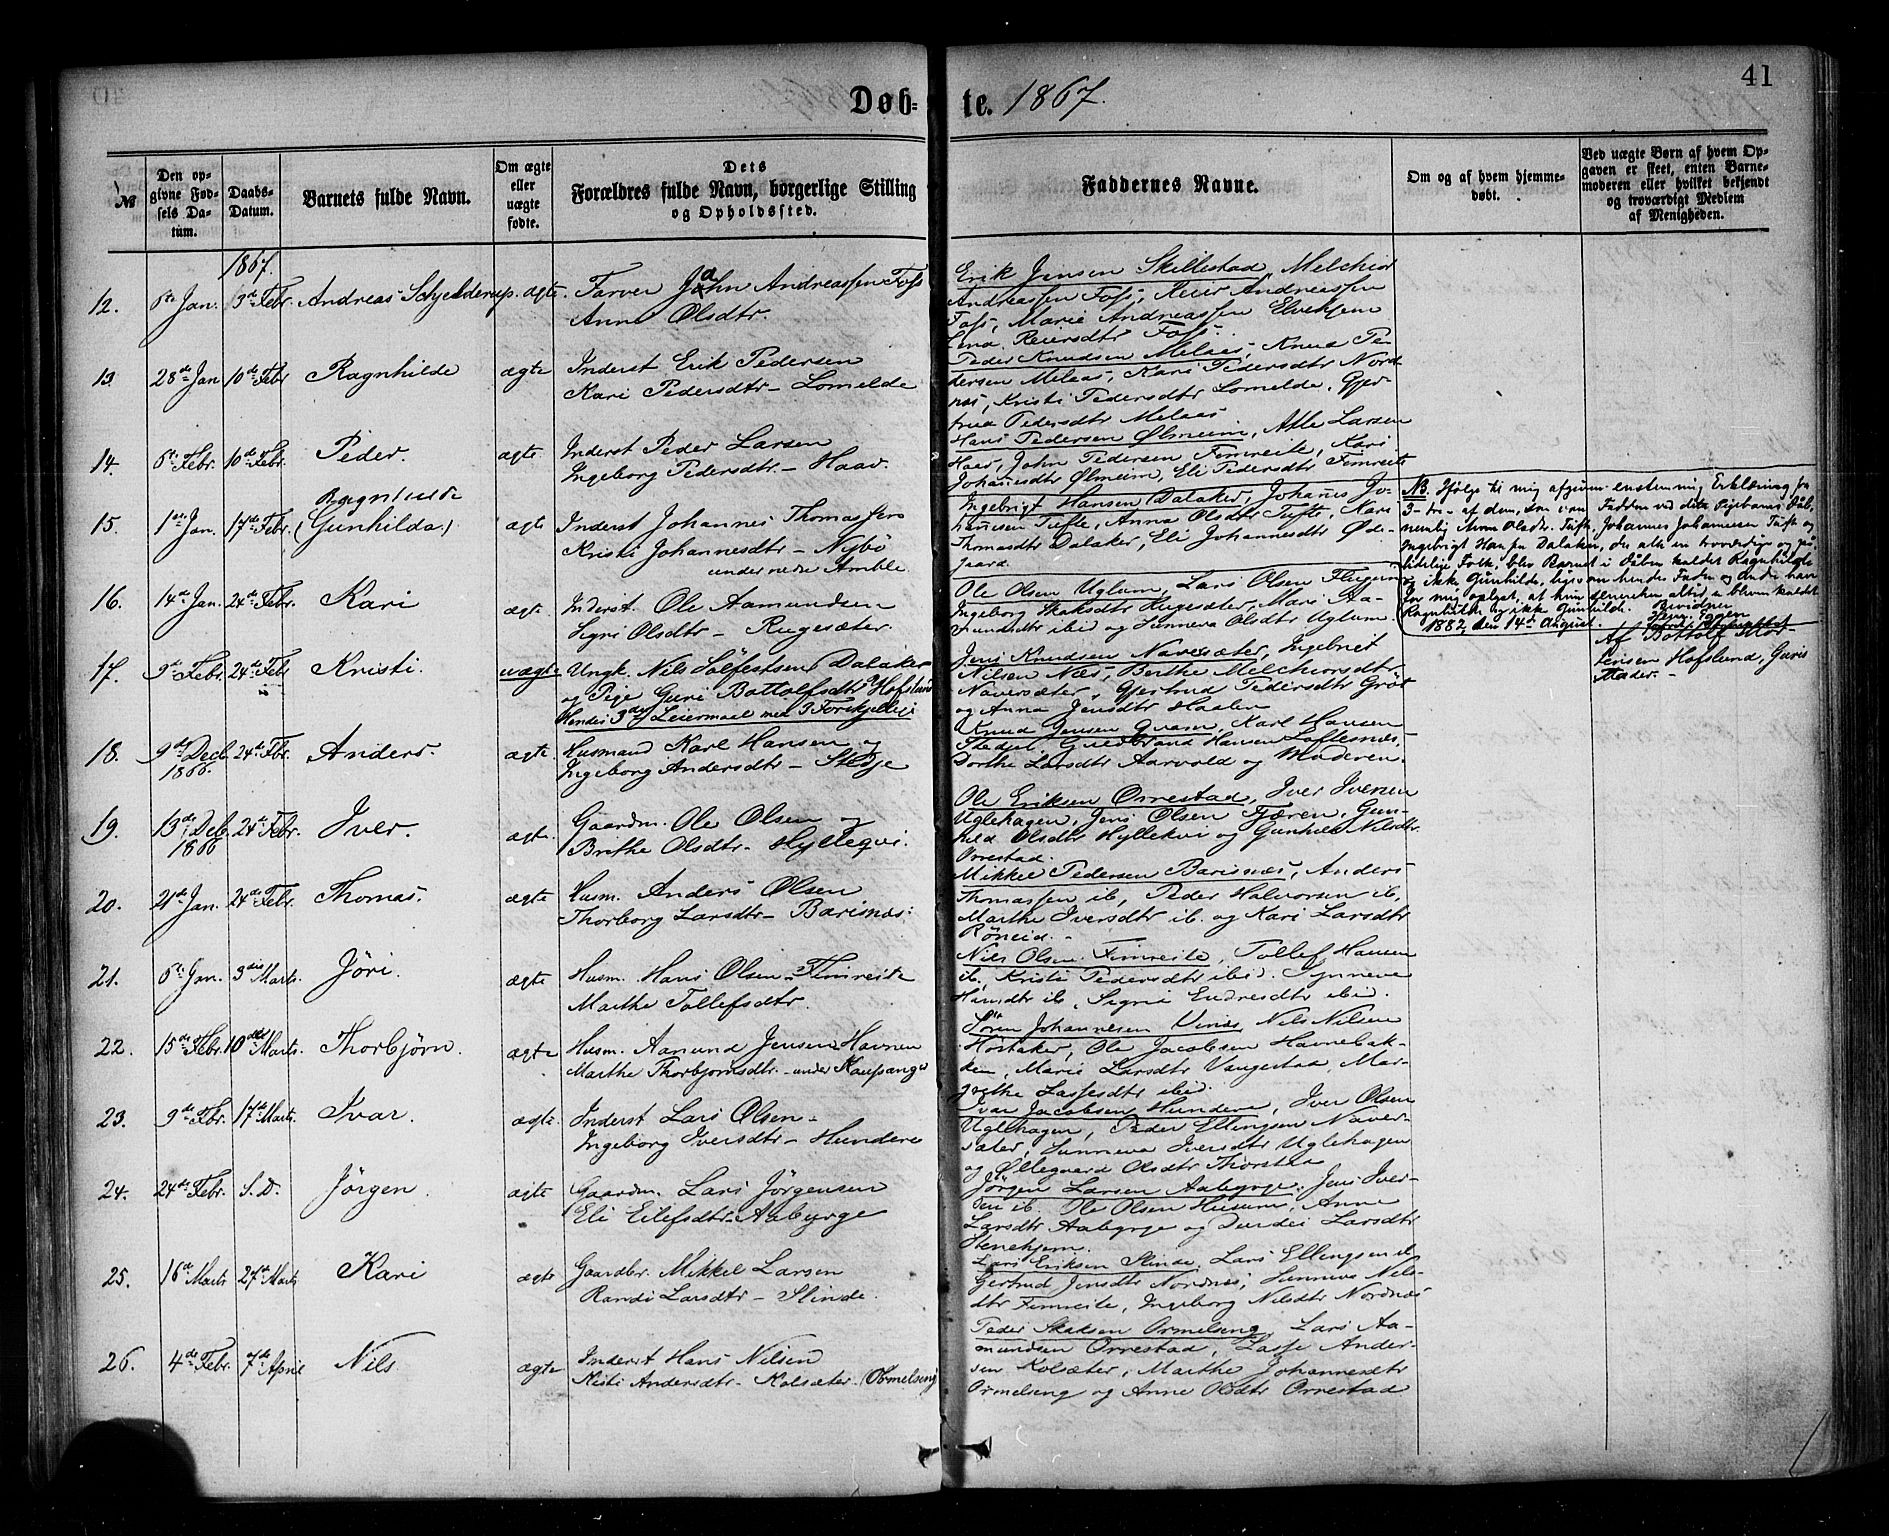 41
Døb-te. 1867.
№
Den opgivne Fødsels Datum.
Daabs-Datum.
Barnets fulde Navn.
Om ægte eller uægte fødte.
Dets Forældres fulde Navn, borgerlige Stilling og Opholdssted.
Faddernes Navne.
Om og af hvem hjemmedøbt.
Ved uægte Børn af hvem Opgaven er skeet, enten Barnemoderen eller hvilket bekjendt og troværdigt Medlem af Menigheden.
1867.
12. 6te Jan. 3de Febr. Andreas Schjelderup. ægte. Farver Jahn Andreassen Foss
Anne Olsdtr.
Erik Jensen Skillestad, Melchior
Andreassen Foss, Reier Andreassen
Foss, Marie Andreassen Elvekjem
Lena Reiersdtr Foss.
13. 28de Jan 10de Febr Ragnhilde ægte Inderst Erik Pedersen
Kari Pedersdtr – Lomelde
Peder Knudsen Melaas, Knud Pe-
dersen Melaas, Kari Pedersdtr Nord-
næs, Kristi Pedersdtr Lomelde, Gjer-
trud Pedersdtr Melaas
14. 6te Febr. 10de Febr. Peder. ægte Inderst Peder Larsen
Ingeborg Pedersdtr – Haav.
Hans Pedersen Ølmeim, Atle Larsen
Haav, John Pedersen Fimreite, Kari
Johannesdtr Ølmeim, Eli Pedersdtr Fimreite
15. 1ste Jan. 17de Febr. Ragnhilde
(Gunhilda) ægte Inderst Johannes Thomassen
Kristi Johannesdtr – Nybø
under nedre Amble
Ingebrigt Hansen Dalaker, Johannes Jo-
hannesen Tufte, Anna Olsdtr Tufte, Kari
Thomasdtr Dalaker, Eli Johannesdtr Øde-
gaard.
NB. Ifølge til mig afgiven enstemmig Erklæring fra
3 tre af dem, som vare Faddere ved dette Pigebarns Daab,
nemlig Anna Olsdtr. Tufte, Johannes Johannesen Tufte og
Ingebrigt Hansen Dalaker, der alle ere troværdige og paa-
lidelige Folk, blev Barnet i Daaben kaldet Ragnhilde
og ikke Gunhilde, ligesom hendes Fader og andre have
for mig oplyst, at hun senere hen altid er bleven kaldet
Ragnhilde og ikke Gunhilde. Bevidner
1882, den 14de August.
16. 14de Jan. 24de Febr. Kari ægte Inderst. Ole Aamundsen
Sigri Olsdtr – Rugesæter.
Ole Olsen Uglum, Lars Olsen Flugeim
Ingeborg Skaksdtr Rugesæter, Mari Aa-
mundsdtr ibid og Sunneva Olsdtr Uglum
17. 9de Febr. 24de Febr Kristi. uægte Ungk. Nils Sølfestsen Dalaker
og Pige Guri Bottolfsdtr Hofslund
Hendes 3die Leiermaal med 3 Forskjellige
Jens Knudsen Navarsæter, Ingebriet
Nilsen Næs, Berthe Melchiorsdtr
Navarsæter, Gjertrud Pedersdtr Grøt
og Anna Jensdtr Haalen
Af Bottolf Mor-
tensen Hofslund, Guris
Fader. –
18. 9de Decb. 1866. 24de Febr. Anders. ægte. Husmand Karl Hansen og
Ingeborg Andersdtr – Stedje
Knud Jensen Quam, Karl Hansen
Stedje, Guldbrand Hansen Loftesnæs,
Dorthe Larsdtr Aarvold og Moderen.
19. 13de Decb. 1866 24de Febr. Iver. ægte. Gaardm. Ole Olsen og
Brithe Olsdtr – Hylleqvi.
Ole Eriksen Orrestad, Iver Iversen
Uglehagen, Jens Olsen Fjæren, Gun-
hild Olsdtr Hyllekvi og Gunhild Nilsdtr
Orrestad.
20. 21de Jan. 24de Febr. Thomas. ægte Husm. Anders Olsen
Thorborg Larsdtr – Barisnæs.
Mikkel Pedersen Barisnæs, Anders
Thomassen ib, Peder Halvorsen ib,
Marthe Iversdtr ib. og Kari Larsdtr
Røneid. –
21. 6te Jan. 3die Marts. Jöri. ægte Husm. Hans Olsen – Fimreite
Marthe Tollefsdtr.
Nils Olsen Fimreite, Tollef Hansen
ib, Kristi Pedersdtr ibid. Synneva
Hansdtr ib, Sigrid Endresdtr ibid.
22. 15de Febr. 10de Marts. Thorbjørn. ægte Husm. Aamund Jensen Havnen
Marthe Thorbjørnsdtr. – under Kaupanger
Søren Johannesen Vinæs, Nils Nilsen
Høstaker, Ole Jacobsen Havnebak-
ken, Maris Larsdtr Vangestad, Mar-
grethe Lassesdtr ibid.
23. 9de Febr. 17de Marts. Ivar. ægte. Inderst Lars Olsen –
Ingeborg Iversdtr – Hundere
Ivar Jacobsen Hundere, Iver Olsen
Uglehagen, Peder Ellingsen Naver-
sæter, Sunneva Iversdtr Uglehagen
og Øllegaard Olsdtr Thorstad
24. 24de Febr. S.D. Jørgen. ægte Gaardm. Lars Jørgensen
Eli Eilefsdtr – Aabyrge
Jørgen Larsen Aabyrge, Jens Iver-
sen ib. Ole Olsen Husum, Anne
Larsdtr Aabyrge og Durdei Larsdtr
Stenehjem.
25. 16de Marts 27de Marts Kari ægte Gaardbr. Mikkel Larsen
Randi Larsdtr – Slinde.
Lars Eriksen Slinde, Lars Ellingsen ib
Gertrud Jensdtr Nordnæs, Sunneva Nils-
dtr Fimreite, Ingeborg Nilsdtr Nordnæs
26. 4de Febr. 7de April Nils ægte Inderst Hans Nilsen
Kristi Andersdtr – Kolsæter. (Ormelseng)
Peder Skaksen Ormelseng, Lars Aa-
mundsen Orrestad, Lasse Ander-
sen Kolsæter, Marthe Johannesdtr
Ormelseng og Anne Olsdtr Orrestad